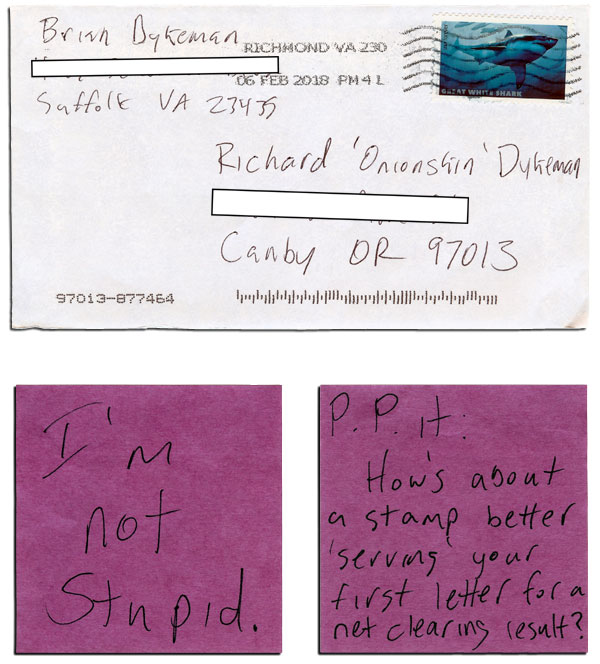 Brian Dykeman
RICHMOND VA 230
06 FEB 2018 PM 4 L
Suffolk VA 23435
GREAT WHITE SHARK
Richard 'Onionskin' Dykeman
Canby OR 97013
97013-877464
I'm
not
Stupid.
P.P. it:
How's about
a stamp better
'serving' your
first letter for a
net clearing result?